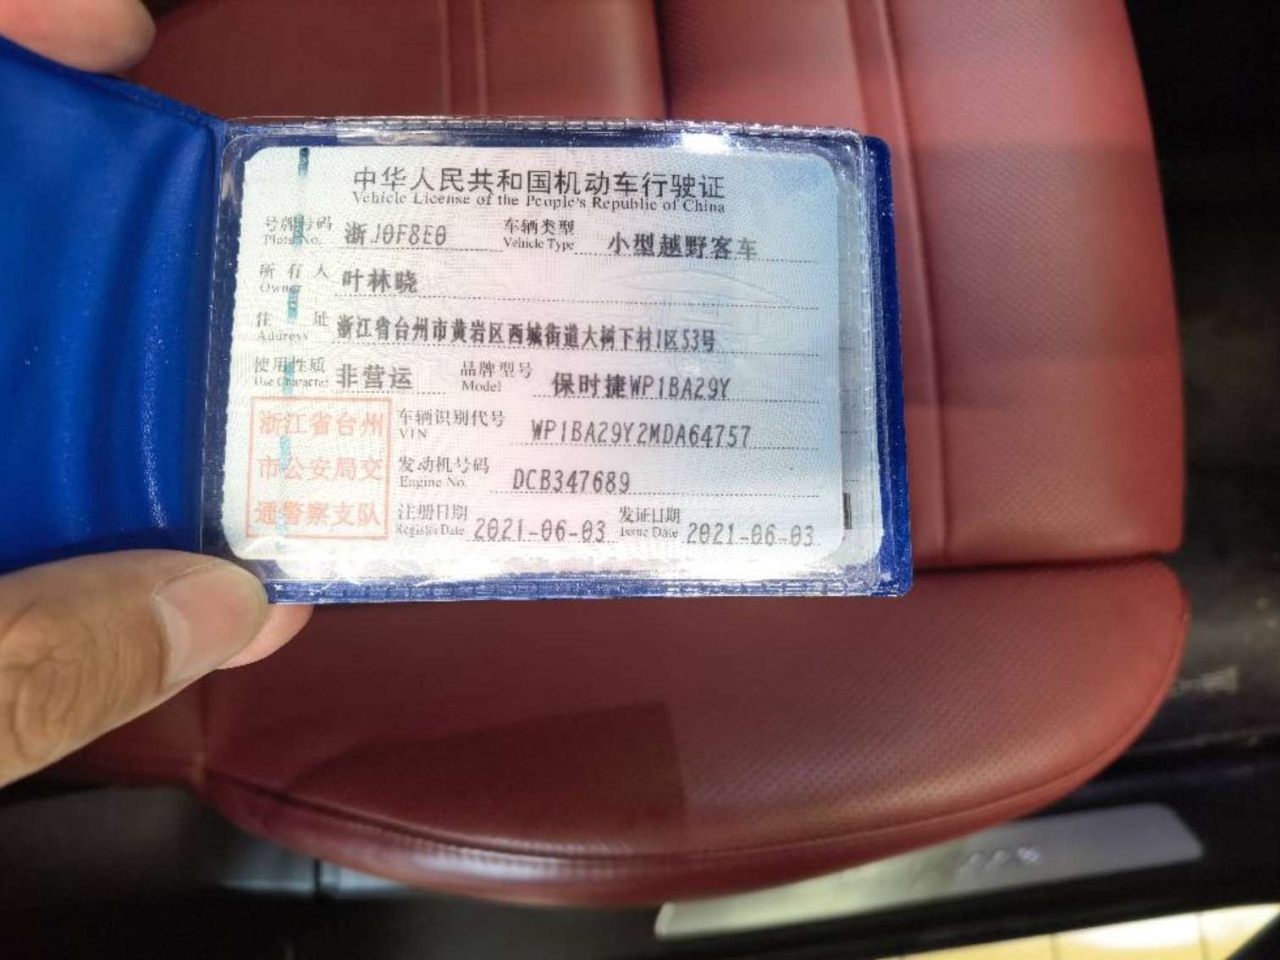 中华人民共和国机动车行驶证
Vehicle License of the People's Republic of China
号牌号码 浙J0F8E0 车辆类型 小型越野客车
Plate No. Vehicle Type
所有人 叶林晓
Owner
住址 浙江省台州市黄岩区西城街道大树下村1区53号
Address
使用性质 非营运 品牌型号 保时捷WP1BA29Y
Use Character Model
浙江省台州
市公安局交
通警察支队
车辆识别代号 WP1BA29Y2MDA64757
VIN
发动机号码 DCB347689
Engine No.
注册日期 2021-06-03 发证日期 2021-06-03
Register Date Issue Date